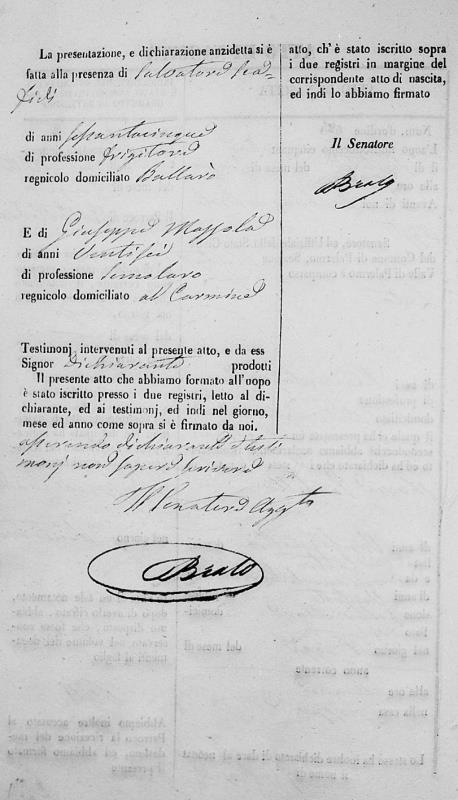 La presentazione, e dichiarazione anzidetta si è
fatta alla presenza di Salvatore
di anni sessantacinque
di professione frigitore
regnicolo domiciliato Ballarò
E di Giuseppe Mazzola
di anni Ventisei
di professione Semolaro
regnicolo domiciliato al Carmine
Testimonj intervenuti al presente atto, e da ess
Signor dichiarante prodotti
Il presente atto che abbiamo formato all'uopo
è stato iscritto presso i due registri, letto al di-
chiarante, ed ai testimonj, ed indi nel giorno,
mese ed anno come sopra si è firmato da noi.
asserendo dichiarante e testi
monj non sapere scrivere
Il Senatore Agg.to
Beato
atto, ch'è stato iscritto sopra
i due registri in margine del
corrispondente atto di nascita,
ed indi lo abbiamo firmato
Il Senatore
Beato